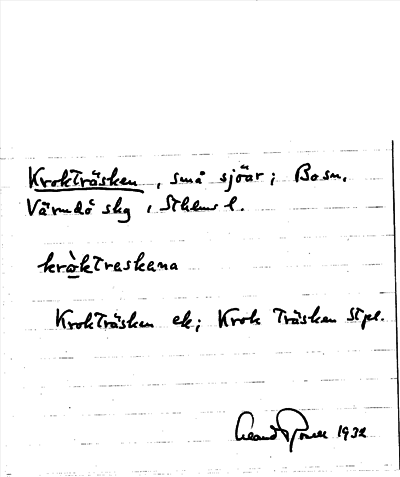 Krokträsken, små sjöar; Bosn.
Värmdö skg, Sthlms l.
kròktreskena
Krokträsken ek; Krok träsken Stpl.
1932